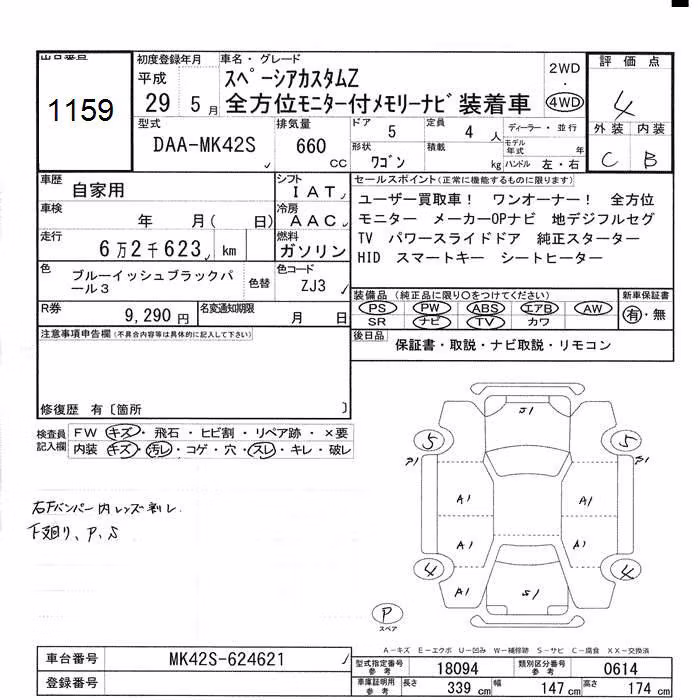 出品番号
1159
初度登録年月
平成
29 5月
車名・グレード
スペーシアカスタムZ
全方位モニター付メモリーナビ装着車
2WD
・
4WD
評価点
4
外装 内装
C B
型式
DAA-MK42S
排気量
660 CC
ドア 5
形状 ワゴン
定員 4 人
積載 kg
ディーラー・並行
モデル年式 年
ハンドル 左・右
車歴 自家用
シフト IAT
車検 年 月( 日)
冷房 AAC
走行 6万2千623 km
燃料 ガソリン
色 ブルーイッシュブラックパール3
色替
色コード ZJ3
R券 9,290円
名変通知期限 月 日
セールスポイント(正常に機能するものに限ります)
ユーザー買取車! ワンオーナー! 全方位
モニター メーカーOPナビ 地デジフルセグ
TV パワースライドドア 純正スターター
HID スマートキー シートヒーター
装備品 (純正品に限り○をつけてください)
PS PW ABS エアB AW
SR ナビ TV カワ
新車保証書
有・無
後日品 保証書・取説・ナビ取説・リモコン
注意事項申告欄(不具合内容等は具体的に記入して下さい)
修復歴 有〔箇所 〕
検査員記入欄
FW キズ・飛石・ヒビ割・リペア跡・×要
内装 キズ・汚レ・コゲ・穴・スレ・キレ・破レ
右Fバンパー内レンズ剥レ
下廻り、P、S
J1
5
5
P1
P1
A1
A1
A1
A1
4
4
A1
A1
S1
P
スペア
A-キズ E-エクボ U-凹み W-補修跡 S-サビ C-腐食 XX-交換済
車台番号 MK42S-624621
登録番号
型式指定番号参考 18094
類別区分番号参考 0614
車庫証明用参考 長さ 339 cm 幅 147 cm 高さ 174 cm